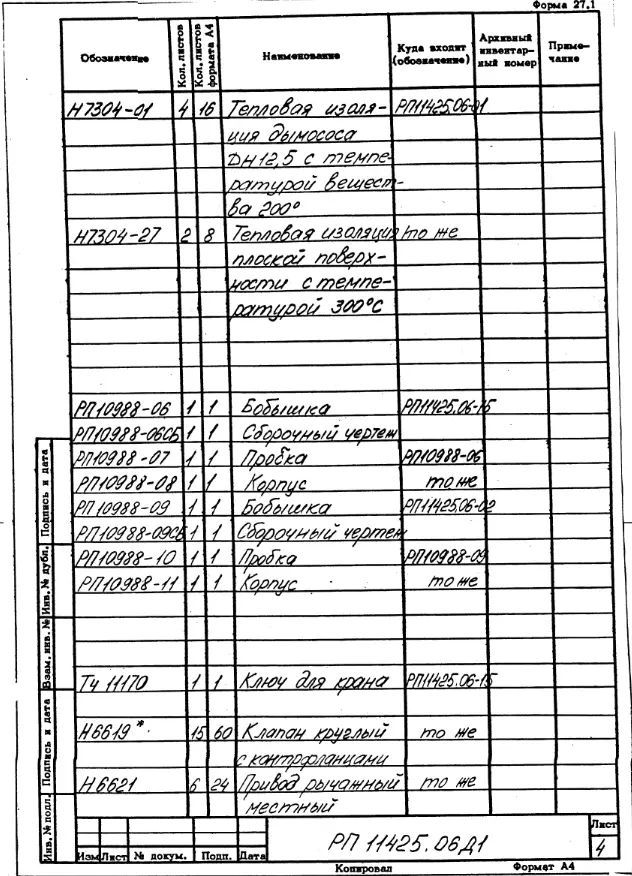 Форма 27.1
Обозначение Кол. листов Кол. листов формата А4 Наименование Куда входит (обозначение) Архивный инвентарный номер Примечание
Н7304-01 4 16 Тепловая изоля- РП11425.06-01
ция дымососа
ДН12,5 с темпе-
ратурой вещест-
ва 200°
Н7304-27 2 8 Тепловая изоляция то же
плоской поверх-
ности с темпе-
ратурой 300°С
РП10988-06 1 1 Бобышка РП11425.06-15
РП10988-06СБ 1 1 Сборочный чертеж
РП10988-07 1 1 Пробка РП10988-06
РП10988-08 1 1 Корпус то же
РП10988-09 1 1 Бобышка РП11425.06-02
РП10988-09СБ 1 1 Сборочный чертеж
РП10988-10 1 1 Пробка РП10988-09
РП10988-11 1 1 Корпус то же
Тч 11170 1 1 Ключ для крана РП11425.06-15
Н6619* 15 60 Клапан круглый то же
с контрфланцами
Н6621 6 24 Привод рычажный то же
местный
Инв.№ подл. Подпись и дата Взам. инв. № Инв.№ дубл. Подпись и дата
Изм Лист № докум. Подп. Дата
РП 11425.06Д1
Лист
4
Копировал Формат А4